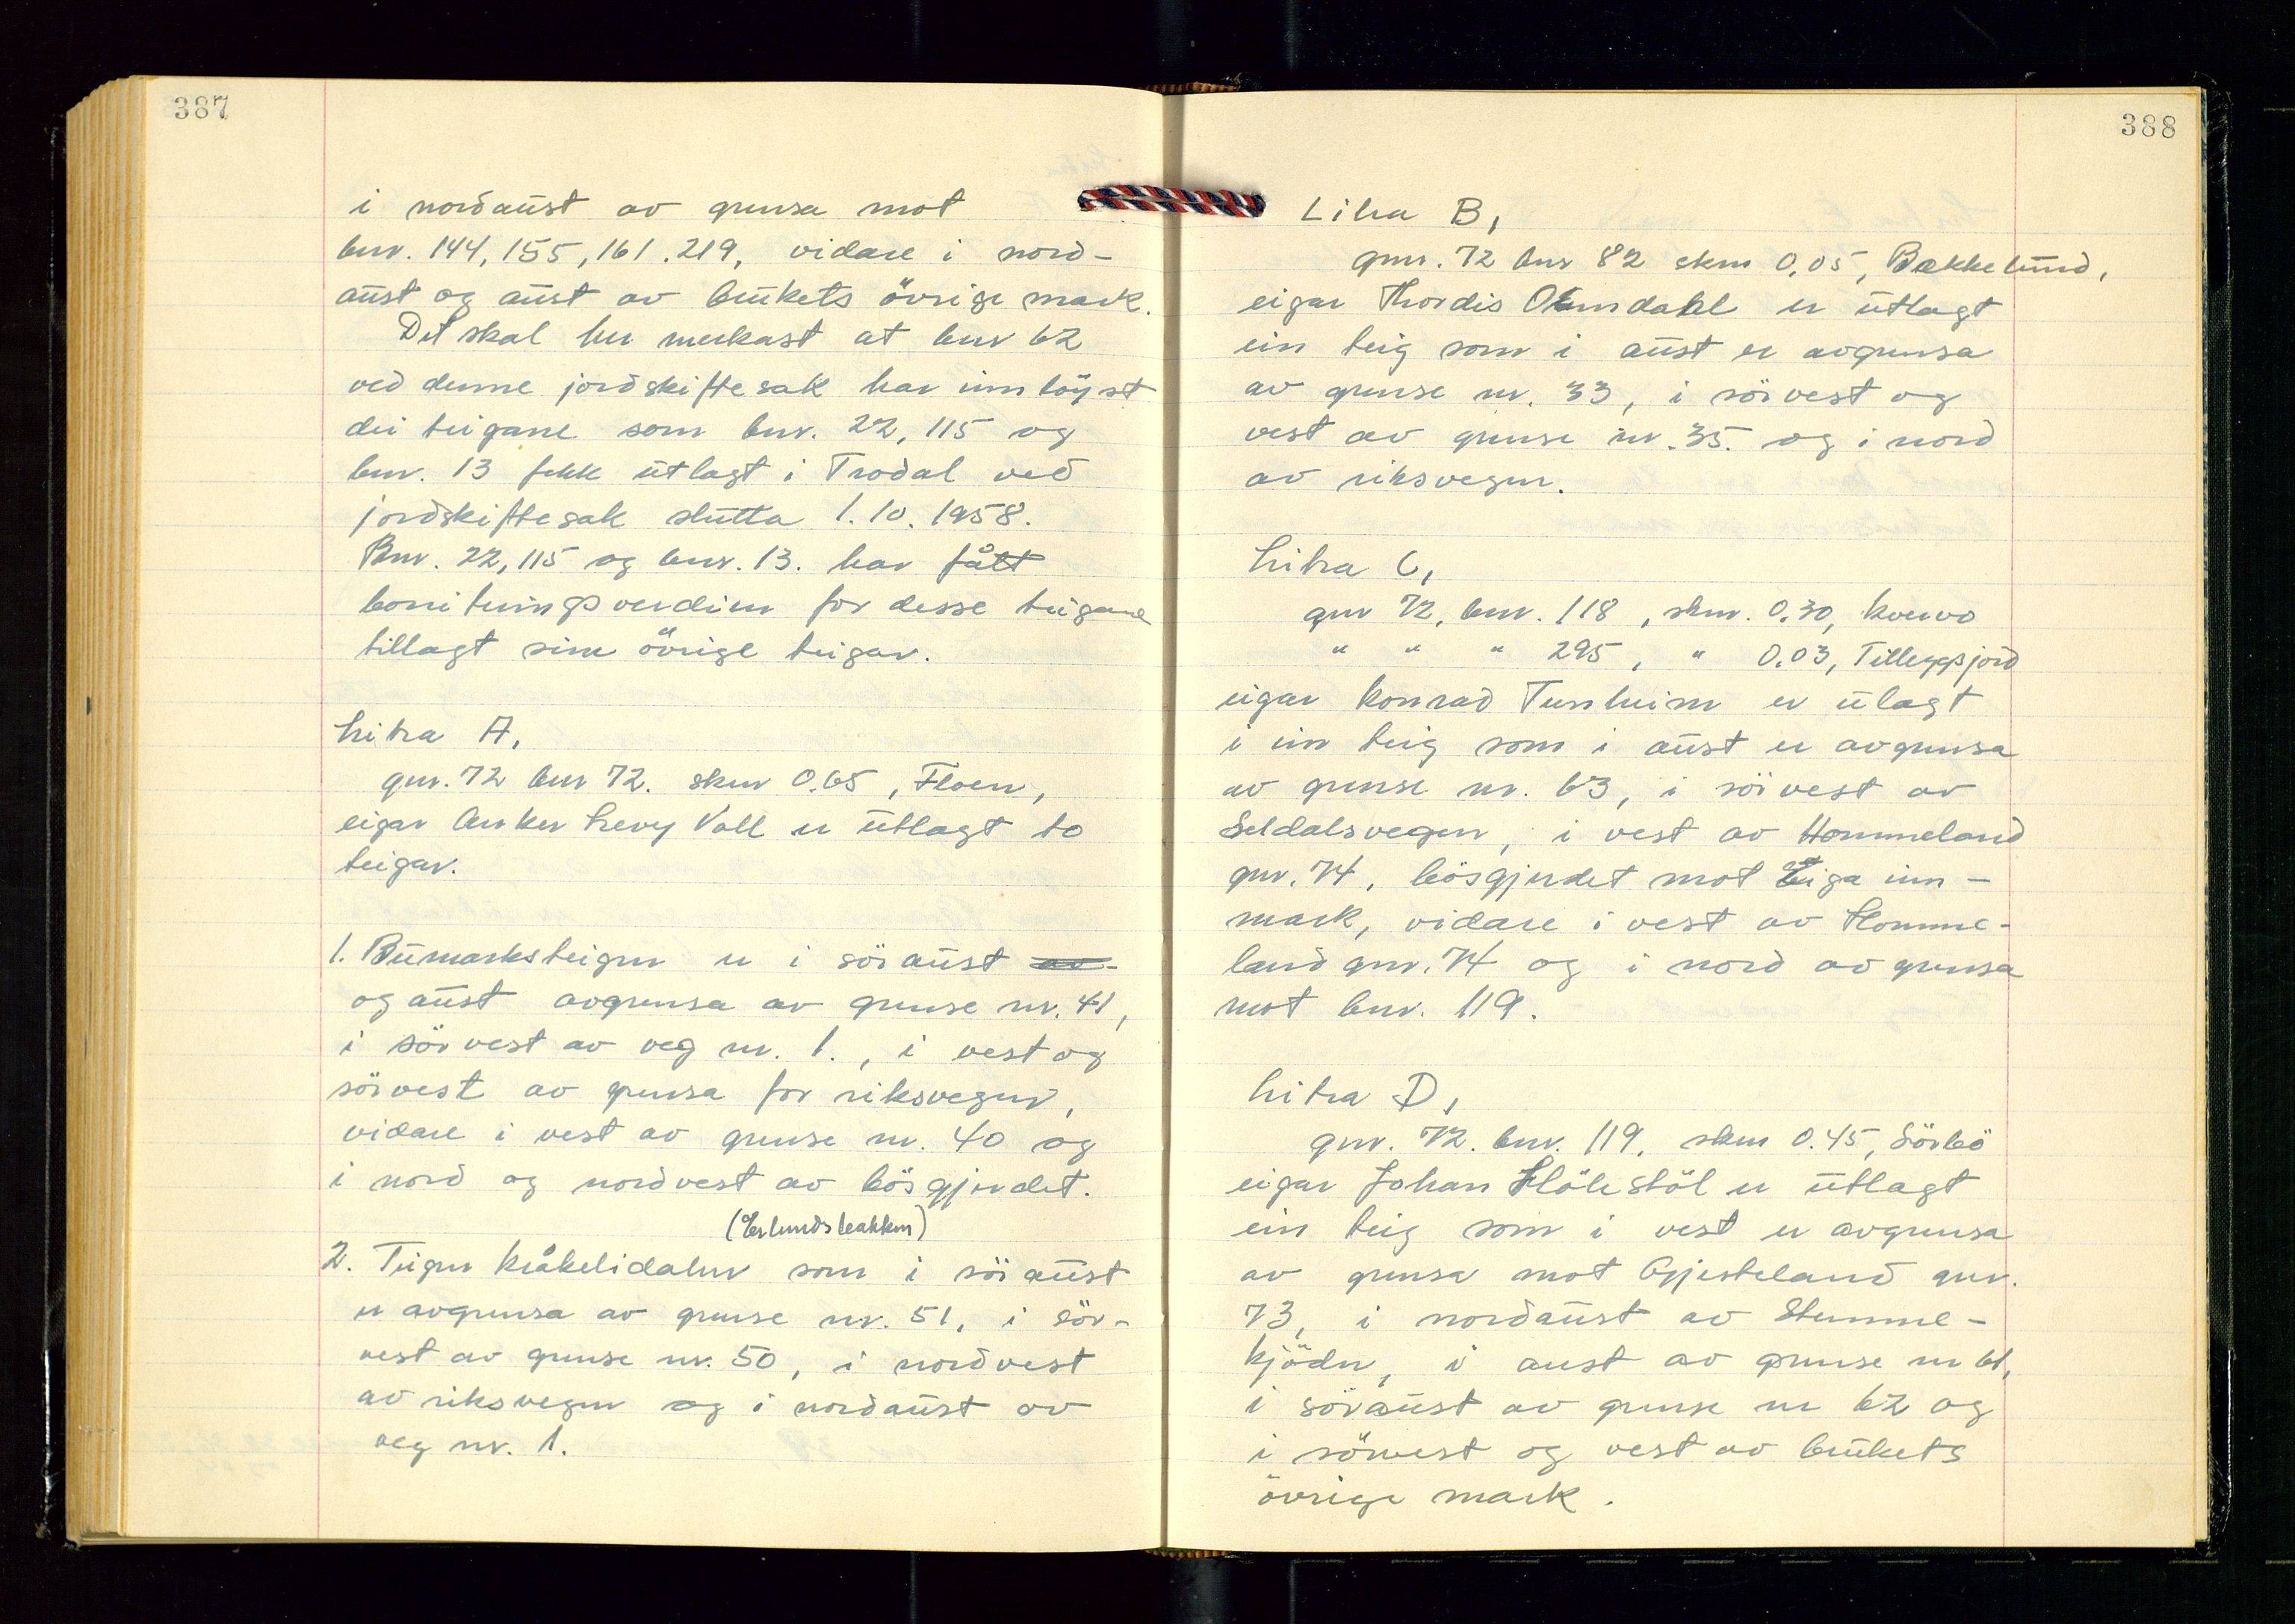 387
i nordaust av grensa mot
bnr. 144, 155, 161. 219, vidare i nord-
aust og aust av brukets övrige mark.
Det skal her merkast at bnr 62
ved denne jordskiftesak har innlöyst
dei teigane som bnr. 22, 115 og
bnr. 13 fekk utlagt i Trodal ved
jordskiftesak slutta 1.10. 1958.
Bnr. 22, 115 og bnr. 13. har fått
boniteringsverdien for desse teigane
tillagt sine övrige teigar.
Litra A,
gnr. 72 bnr 72. skm 0.65, Floen,
eigar Anker Levy Vall er utlagt to
teigar.
1. Bumarksteigen er i söraust av
og aust avgrensa av grense nr. 41,
i sörvest av veg nr. 1., i vest og
sörvest av grensa for riksvegen,
vidare i vest av grense nr. 40 og
i nord og nordvest av bösgjerdet.
(Erlandsbakken)
2. Teigen Kråkelidalen som i söraust
er avgrensa av grense nr. 51, i sör-
vest av grense nr. 50, i nordvest
av riksvegen og i nordaust av
veg nr. 1.
388
Litra B,
gnr. 72 bnr 82 skm 0,05, Bakkelund,
eigar Thordis Omdahl er utlagt
ein teig som i aust er avgrensa
av grense nr. 33, i sörvest og
vest av grense nr. 35. og i nord
av riksvegen.
Litra C,
gnr 72, bnr. 118, skm. 0.30, Kvervo
" " " 295, " 0.03, Tilleggsjord
eigar Konrad Tunheim er ulagt
i ein teig som i aust er avgrensa
av grense nr. 63, i sörvest av
Seldalsvegen, i vest av Hommeland
gnr. 74, bösgjerdet mot Eiga inn-
mark, vidare i vest av Homme-
land gnr. 74 og i nord av grensa
mot bnr. 119.
Litra D,
gnr. 72. bnr. 119, skm 0.45, Sörbö
eigar Johan Hölestöl er utlagt
ein teig som i vest er avgrensa
av grensa mot Gjesteland gnr.
73, i nordaust av Stemme-
tjödn, i aust av grense nr 61,
i söraust av grense nr 62 og
i sörvest og vest av brukets
övrige mark.